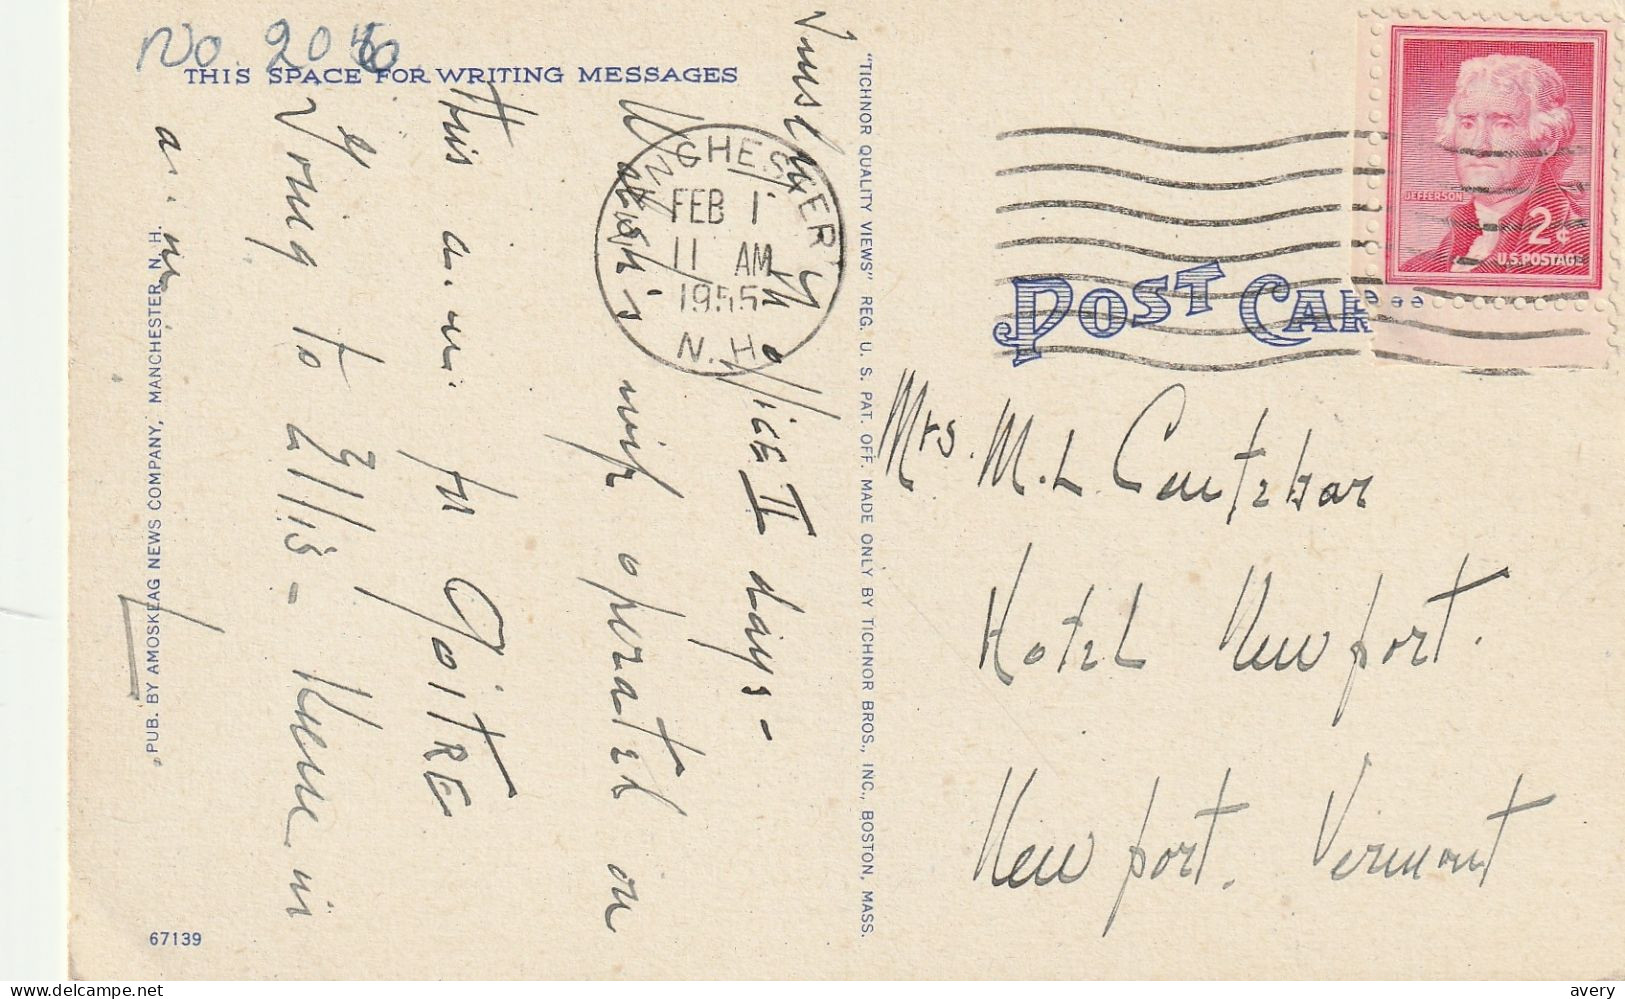 No. 2056
THIS SPACE FOR WRITING MESSAGES
Tuesday
in office II days -
wip operated on
this a.m. for GOITRE
Going to Ellis - Keene in
a.m.
MANCHESTER
FEB 1
11 AM
1955
N.H.
"TICHNOR QUALITY VIEWS" REG. U. S. PAT. OFF. MADE ONLY BY TICHNOR BROS., INC., BOSTON, MASS.
PUB. BY AMOSKEAG NEWS COMPANY, MANCHESTER, N. H.
67139
JEFFERSON
2¢
U.S. POSTAGE
POST CAR
Mrs. M. L. Cantzbar
Hotel Newport.
Newport. Vermont
delcampe.net
avery